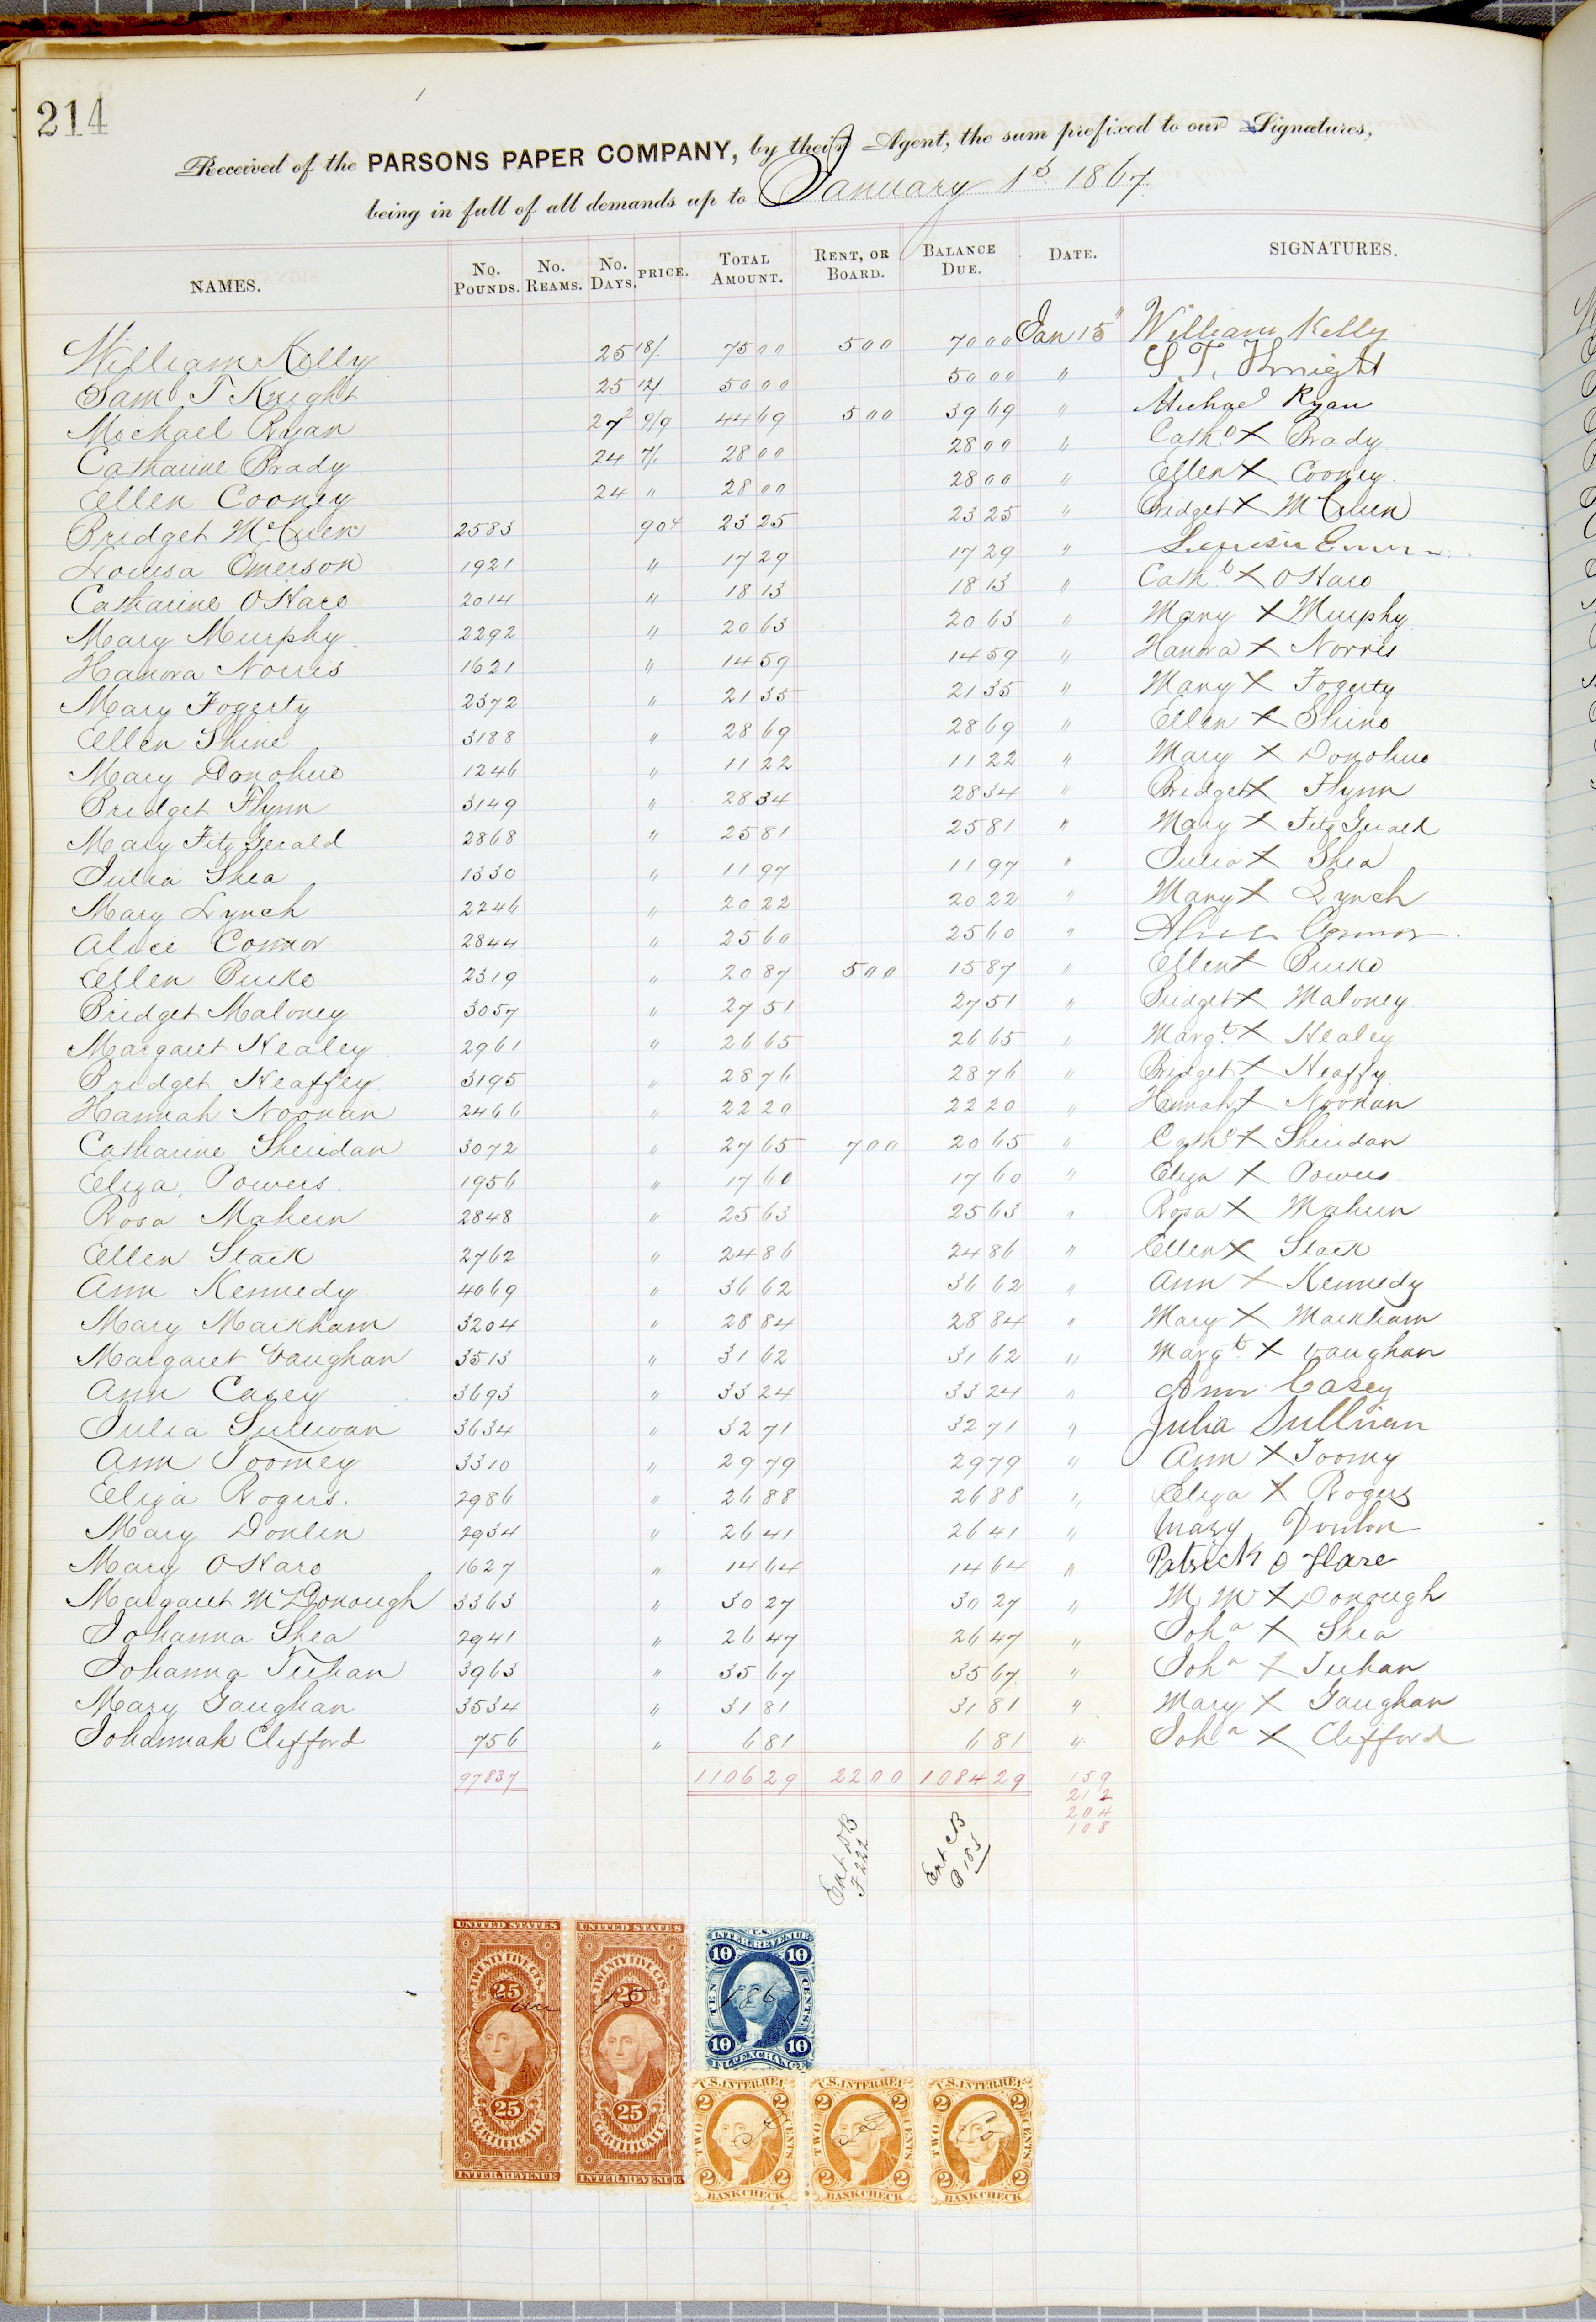 214
Received of the PARSONS PAPER COMPANY, by their Agent, the sum prefixed to our Signatures,
being in full of all demands up to January 1st 1867
NAMES. No. Pounds. No. Reams. No. Days. PRICE. Total Amount. Rent, or Board. Balance Due. Date. SIGNATURES.
William Kelly 25 18/. 75 00 5 00 70 00 Jan 15" William Kelly
Saml T Knight 25 12/. 50 00 50 00 " S. T. Knight
Michael Ryan 27 9/9 44 69 5 00 39 69 " Michael Ryan
Catharine Brady 24 7/. 28 00 28 00 " Cathe X Brady
Ellen Cooney 24 " 28 00 28 00 " Ellen X Cooney
Bridget McCuen 2583 90¢ 23 25 23 25 " Bridget X McCuen
Louisa Emerson 1921 " 17 29 17 29 "
Catharine O Hare 2014 " 18 13 18 13 " Cathe X O Hare
Mary Murphy 2292 " 20 63 20 63 " Mary X Murphy
Hanora Norris 1621 " 14 59 14 59 " Hanora X Norris
Mary Fogerty 2372 " 21 35 21 35 " Mary X Fogerty
Ellen Shine 3188 " 28 69 28 69 " Ellen X Shine
Mary Donohue 1246 " 11 22 11 22 " Mary X Donohue
Bridget Flynn 3149 " 28 34 28 34 " Bridget X Flynn
Mary Fitz Gerald 2868 " 25 81 25 81 " Mary X Fitz Gerald
Julia Shea 1330 " 11 97 11 97 " Julia X Shea
Mary Lynch 2246 " 20 22 20 22 " Mary X Lynch
Alice Connor 2844 " 25 60 25 60 " Alice Connor
Ellen Burke 2319 " 20 87 5 00 15 87 " Ellen X Burke
Bridget Maloney 3057 " 27 51 27 51 " Bridget X Maloney
Margaret Healey 2961 " 26 65 26 65 " Margt X Healey
Bridget Heaffey 3195 " 28 76 28 76 " Bridget X Heaffy
Hannah Noonan 2466 " 22 20 22 20 " Hannah X Noonan
Catharine Sheridan 3072 " 27 65 7 00 20 65 " Cathe X Sheridan
Eliza Powers 1956 " 17 60 17 60 " Eliza X Powers
Rosa Mahern 2848 " 25 63 25 63 " Rosa X Mahern
Ellen Stack 2762 " 24 86 24 86 " Ellen X Stack
Ann Kennedy 4069 " 36 62 36 62 " Ann X Kennedy
Mary Markham 3204 " 28 84 28 84 " Mary X Markham
Margaret Vaughan 3513 " 31 62 31 62 " Margt X Vaughan
Ann Casey 3693 " 33 24 33 24 " Ann Casey
Julia Sullivan 3634 " 32 71 32 71 " Julia Sullivan
Ann Toomey 3310 " 29 79 29 79 " Ann X Toomy
Eliza Rogers. 2986 " 26 88 26 88 " Eliza X Rogers
Mary Donlin 2934 " 26 41 26 41 " Mary Donlon
Mary O Hare 1627 " 14 64 14 64 " Patrick O Hare
Margaret McDonough 3363 " 30 27 30 27 " M Mc X Donough
Johanna Shea 2941 " 26 47 26 47 " Joha X Shea
Johanna Tuhan 3963 " 35 67 35 67 " Joha X Tuhan
Mary Gaughan 3534 " 31 81 31 81 " Mary X Gaughan
Johannah Clifford 756 " 6 81 6 81 " Joha X Clifford
97837 1106 29 22 00 1084 29 159
212
204
108
Ent DB
F 222
Ent CB
P 105
UNITED STATES TWENTY FIVE CTS. 25 25 CERTIFICATE INTER. REVENUE
UNITED STATES TWENTY FIVE CTS. 25 25 CERTIFICATE INTER. REVENUE
U.S. INTER. REVENUE 10 10 TEN CENTS. 10 10 INL. EXCHANGE
Jan 15 1867
U.S. INTER. REV. 2 2 TWO CENTS 2 2 BANK CHECK
U.S. INTER. REV. 2 2 TWO CENTS 2 2 BANK CHECK
U.S. INTER. REV. 2 2 TWO CENTS 2 2 BANK CHECK
P P Co